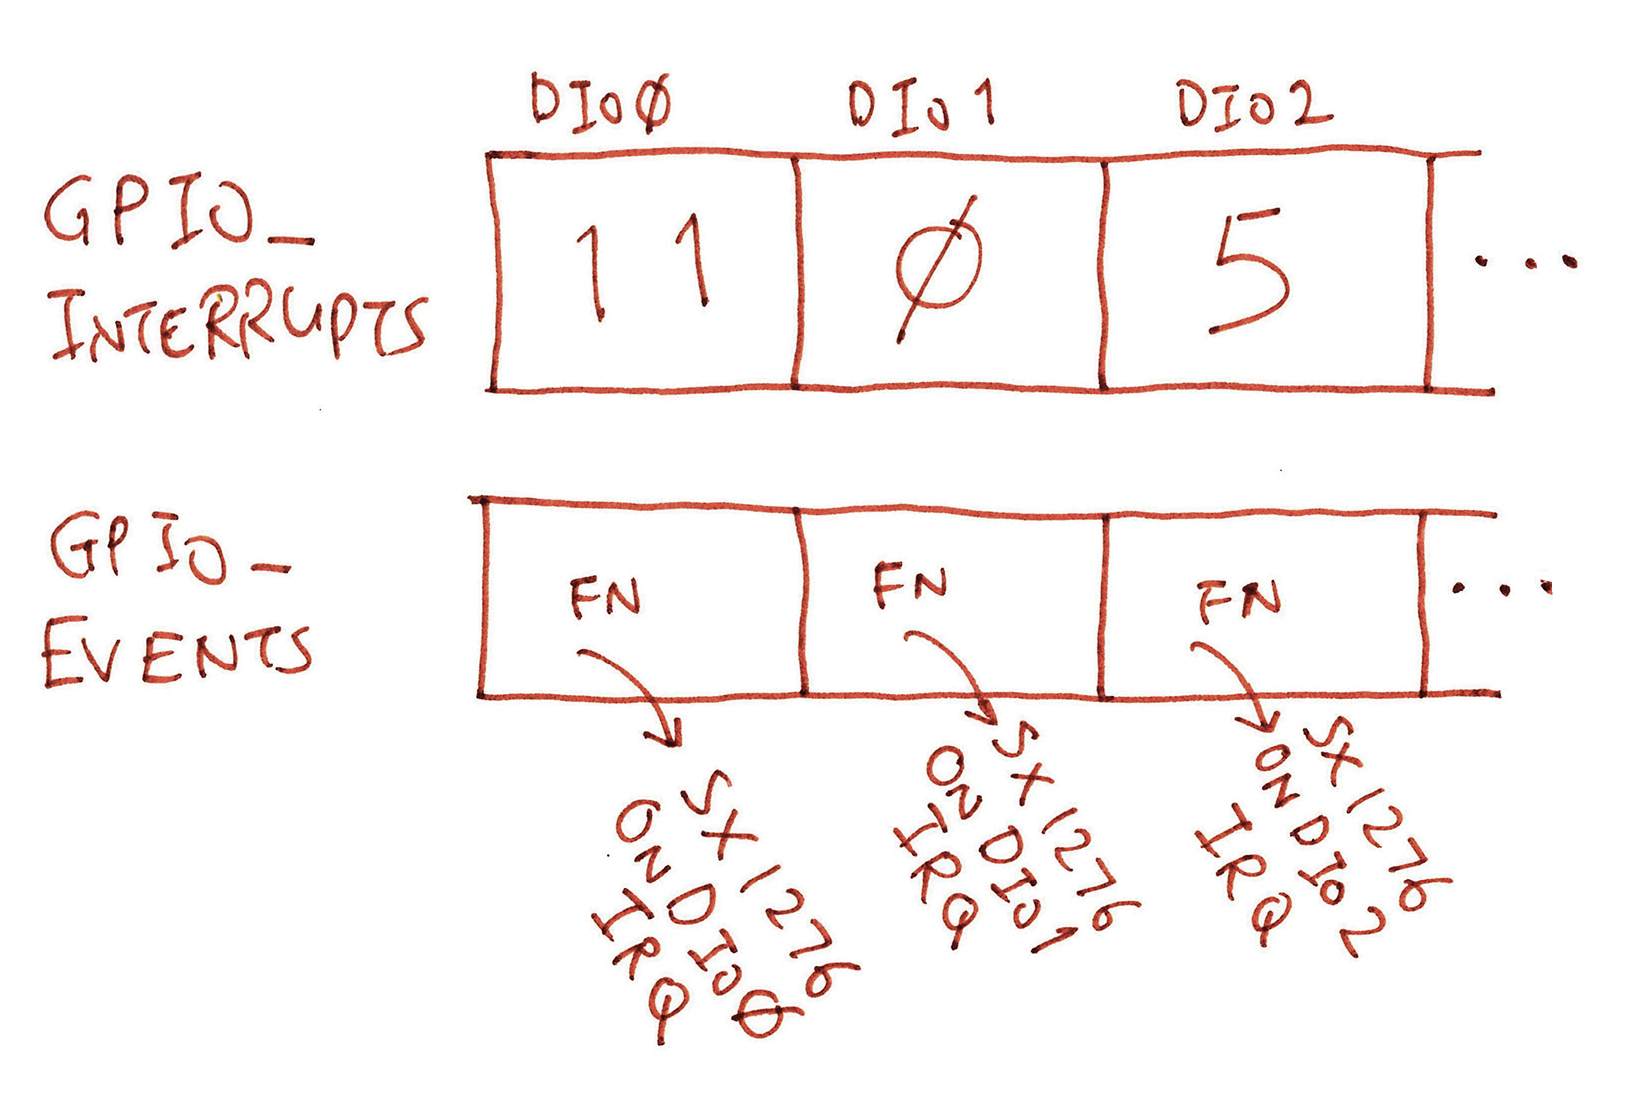 DIO0 DIO1 DIO2
GPIO_
INTERRUPTS
11 0 5 ...
GPIO_
EVENTS
FN FN FN ...
SX1276
ON DIO0
IRQ
SX1276
ON DIO1
IRQ
SX1276
ON DIO2
IRQ